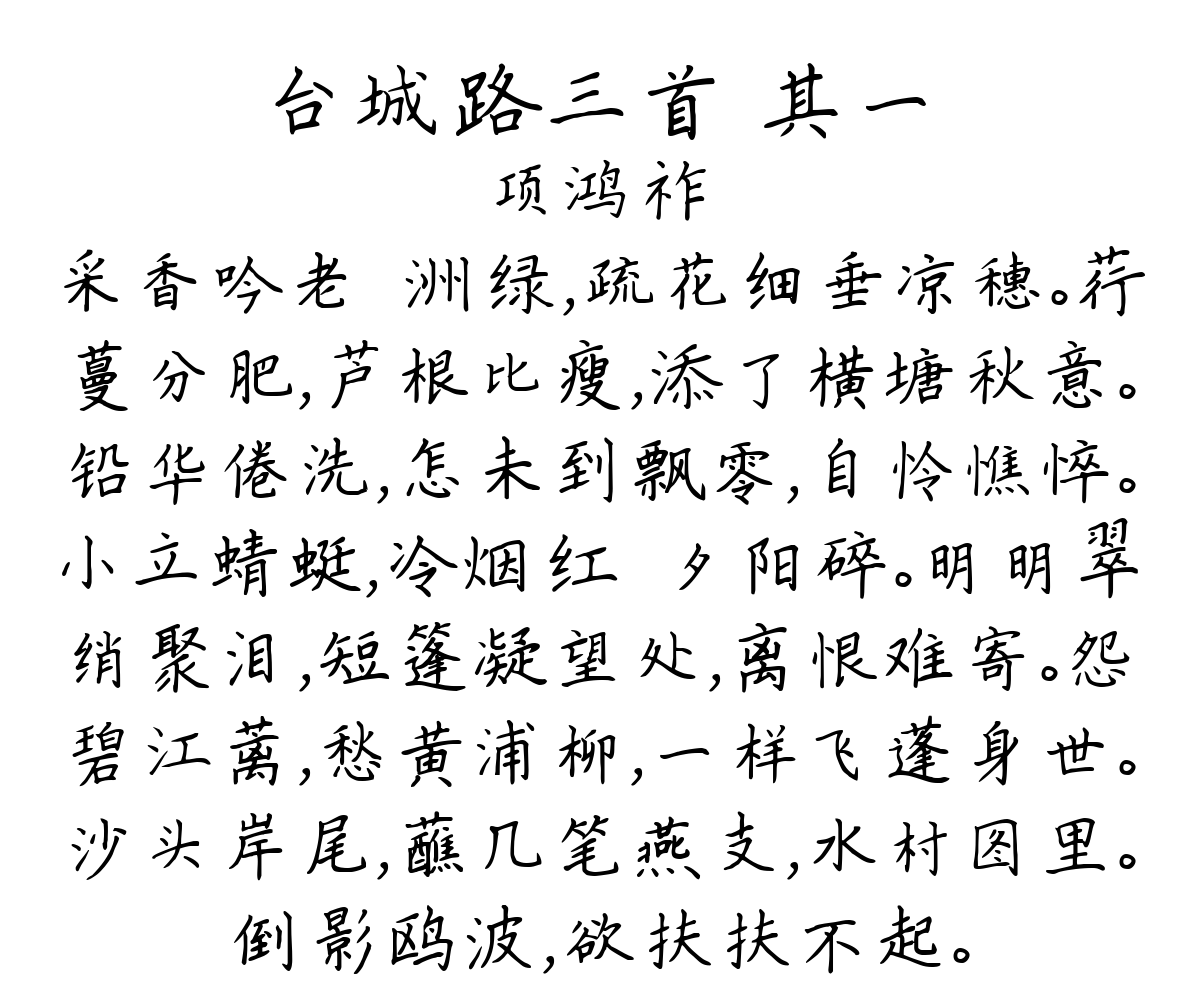 台城路三首 其一
项鸿祚
采香吟老 洲绿,疏花细垂凉穗。荇
蔓分肥,芦根比瘦,添了横塘秋意。
铅华倦洗,怎未到飘零,自怜憔悴。
小立蜻蜓,冷烟红 夕阳碎。明明翠
绡聚泪,短篷凝望处,离恨难寄。怨
碧江蓠,愁黄浦柳,一样飞蓬身世。
沙头岸尾,蘸几笔燕支,水村图里。
倒影鸥波,欲扶扶不起。